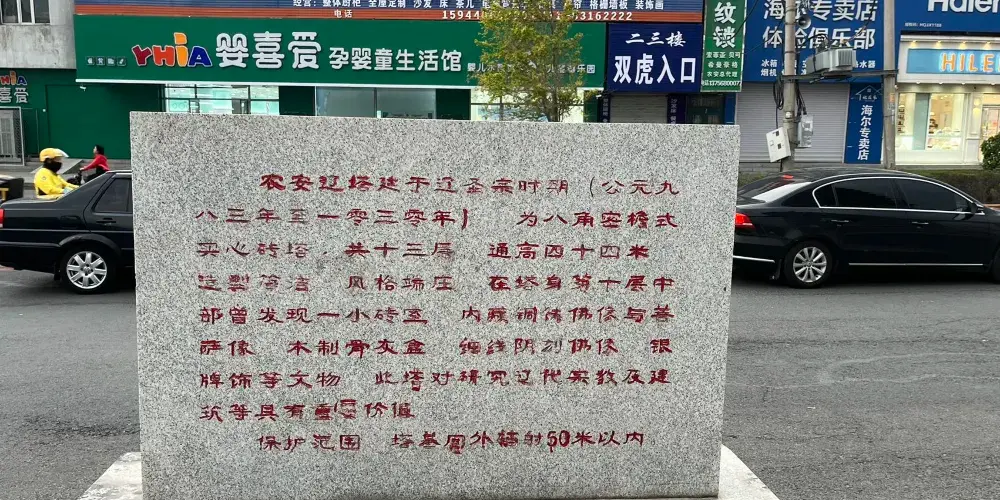 经营：整体厨柜 全屋定制 沙发 床 茶几
格栅墙板 装饰画
电话
YHIA 婴喜爱 孕婴童生活馆
喜爱
二三楼
双虎入口
纹锁
农安总代理
海尔专卖店
体验俱乐部
海尔专卖店
Haier
HILE
农安辽塔建于辽圣宗时期（公元九
八三年至一零三零年） 为八角密檐式
实心砖塔，共十三层 通高四十四米
造型简洁 风格端庄 在塔身第十层中
部曾发现一小砖室 内藏铜佛像与菩
萨像 木制骨灰盒 细线阴刻佛像 银
牌饰等文物 此塔对研究辽代宗教及建
筑等具有重要价值
保护范围 塔基周外辐射50米以内